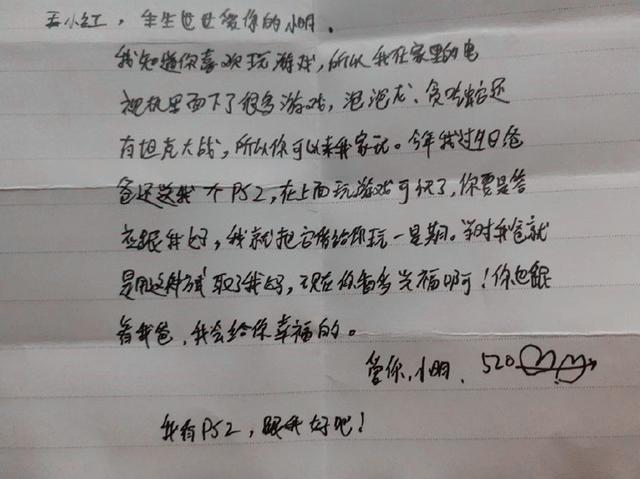 王小红,生生世世爱你的小明.
我知道你喜欢玩游戏,所以我在家里的电
视机里面下了很多游戏,泡泡龙、贪吃蛇还
有坦克大战,所以你可以来我家玩。今年我过生日爸
爸还送我个PS2,在上面玩游戏可快了,你要是答
应跟我好,我就把它借给你玩一星期。当时我爸就
是用这种方式取了我妈,现在你看多幸福啊!你也跟
着我爸,我会给你幸福的。
爱你,小明. 520
我有PS2,跟我好吧!